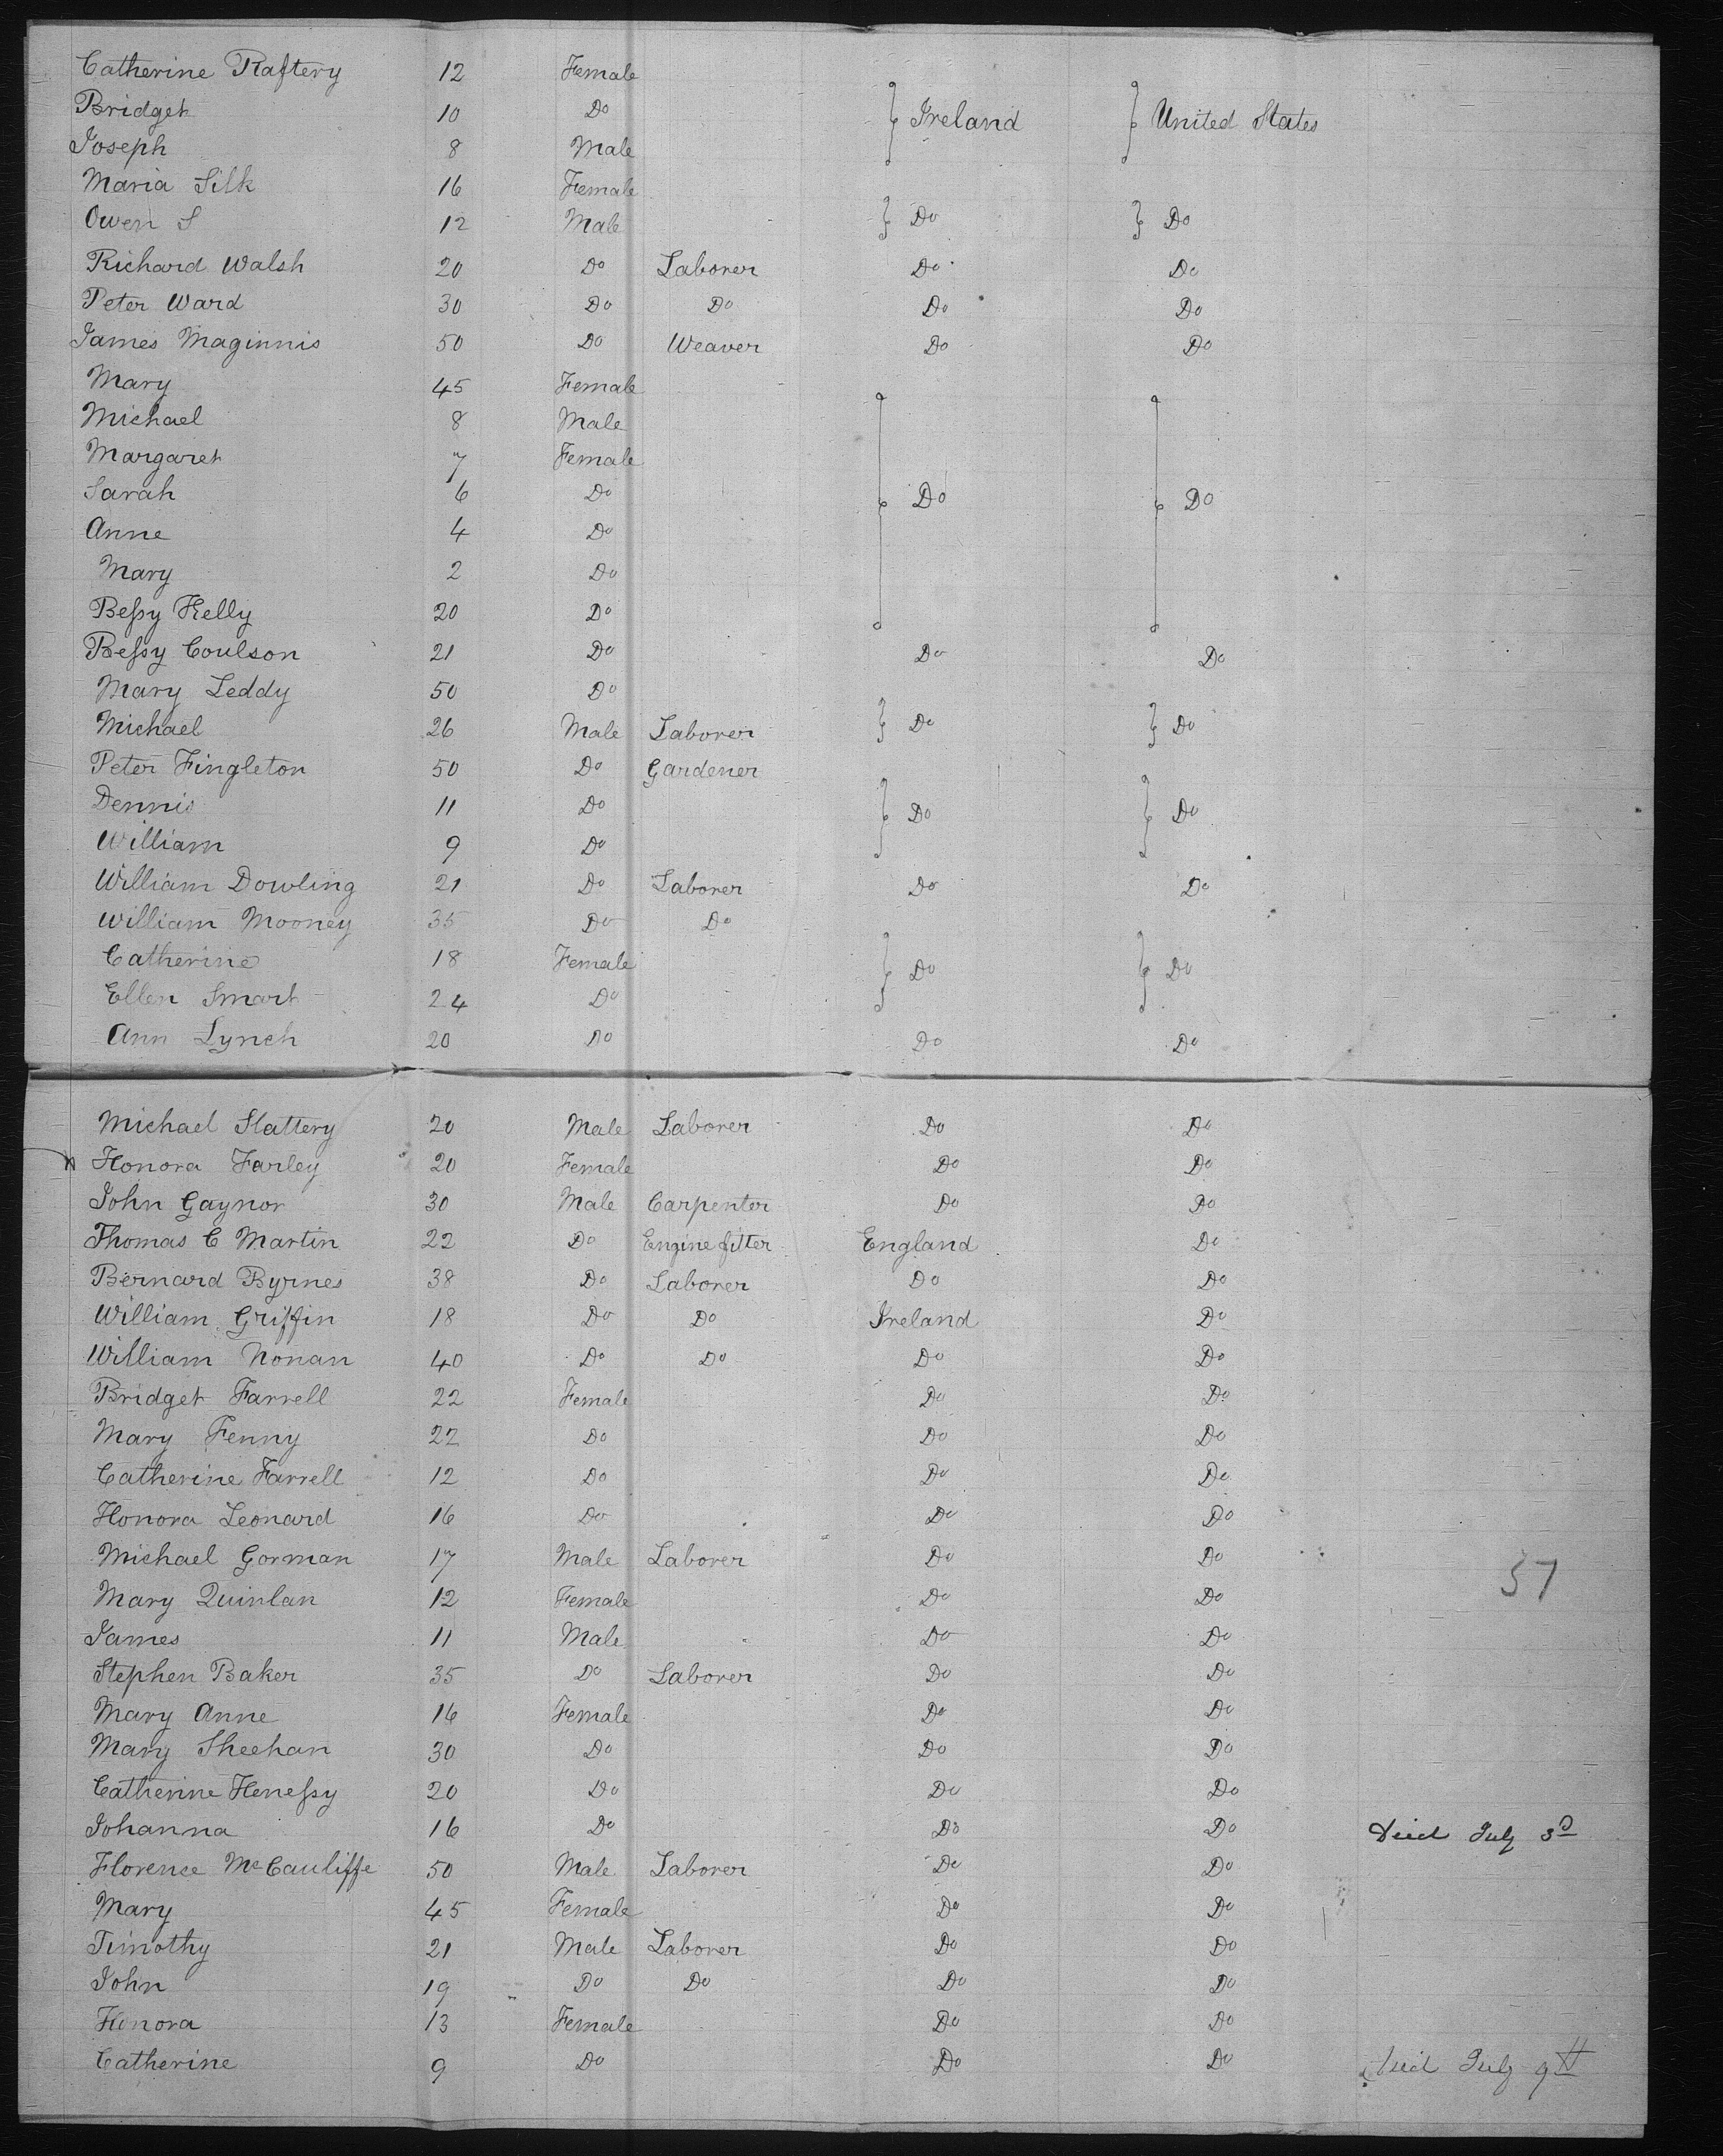 Catherine Raftery 12 Female
Bridget 10 Do } Ireland } United States
Joseph 8 Male
Maria Silk 16 Female
Owen S 12 Male } Do } Do
Richard Walsh 20 Do Laborer Do Do
Peter Ward 30 Do Do Do Do
James Maginnis 50 Do Weaver Do Do
Mary 45 Female
Michael 8 Male
Margaret 7 Female
Sarah 6 Do } Do } Do
Anne 4 Do
Mary 2 Do
Beſsy Kelly 20 Do
Beſsy Coulson 21 Do Do Do
Mary Leddy 50 Do
Michael 26 Male Laborer } Do } Do
Peter Fingleton 50 Do Gardener
Dennis 11 Do } Do } Do
William 9 Do
William Dowling 21 Do Laborer Do Do
William Mooney 35 Do Do
Catherine 18 Female } Do } Do
Ellen Smart 24 Do
Ann Lynch 20 Do Do Do
Michael Slattery 20 Male Laborer Do Do
Honora Farley 20 Female Do Do
John Gaynor 30 Male Carpenter Do Do
Thomas C Martin 22 Do Engine fitter England Do
Bernard Byrnes 38 Do Laborer Do Do
William Griffin 18 Do Do Ireland Do
William Nonan 40 Do Do Do Do
Bridget Farrell 22 Female Do Do
Mary Fenny 22 Do Do Do
Catherine Farrell 12 Do Do Do
Honora Leonard 16 Do Do Do
Michael Gorman 17 Male Laborer Do Do
57
Mary Quinlan 12 Female Do Do
James 11 Male Do Do
Stephen Baker 35 Do Laborer Do Do
Mary Anne 16 Female Do Do
Mary Sheehan 30 Do Do Do
Catherine Heneſsy 20 Do Do Do
Johanna 16 Do Do Do Died July 3D
Florence McCauliffe 50 Male Laborer Do Do
Mary 45 Female Do Do
Timothy 21 Male Laborer Do Do
John 19 Do Do Do Do
Honora 13 Female Do Do
Catherine 9 Do Do Do Died July 9th